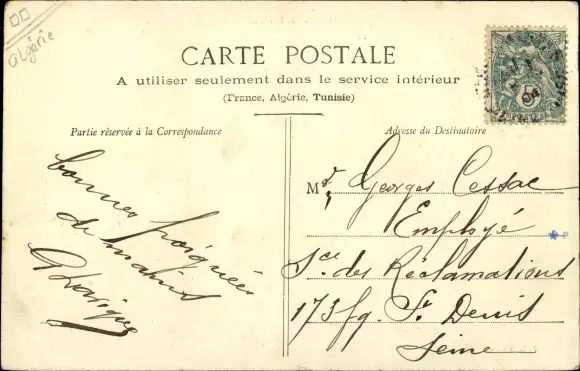 Algérie
CARTE POSTALE
A utiliser seulement dans le service intérieur
(France, Algérie, Tunisie)
Partie réservée à la Correspondance
Adresse du Destinataire
bonnes poignées
de mains
Mr Georges Cessac
Employé
Sce des Réclamations
173 fg. St Denis
Seine
5
POSTES